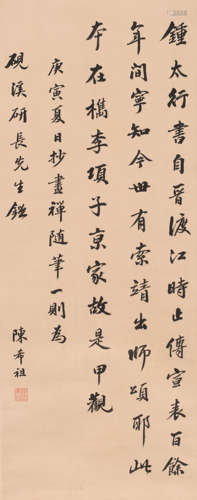 鍾太行書自晉渡江時止傳宣表百餘
年間寧知今世有索靖出師頌耶此
本在檇李項子京家故是甲觀
庚寅夏日抄畫禪隨筆一則為
硯溪研長先生鑑
陳希祖